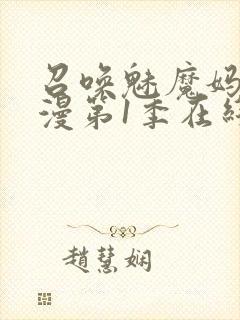 召唤魅魔妈
漫第1季在线
趙慧娴